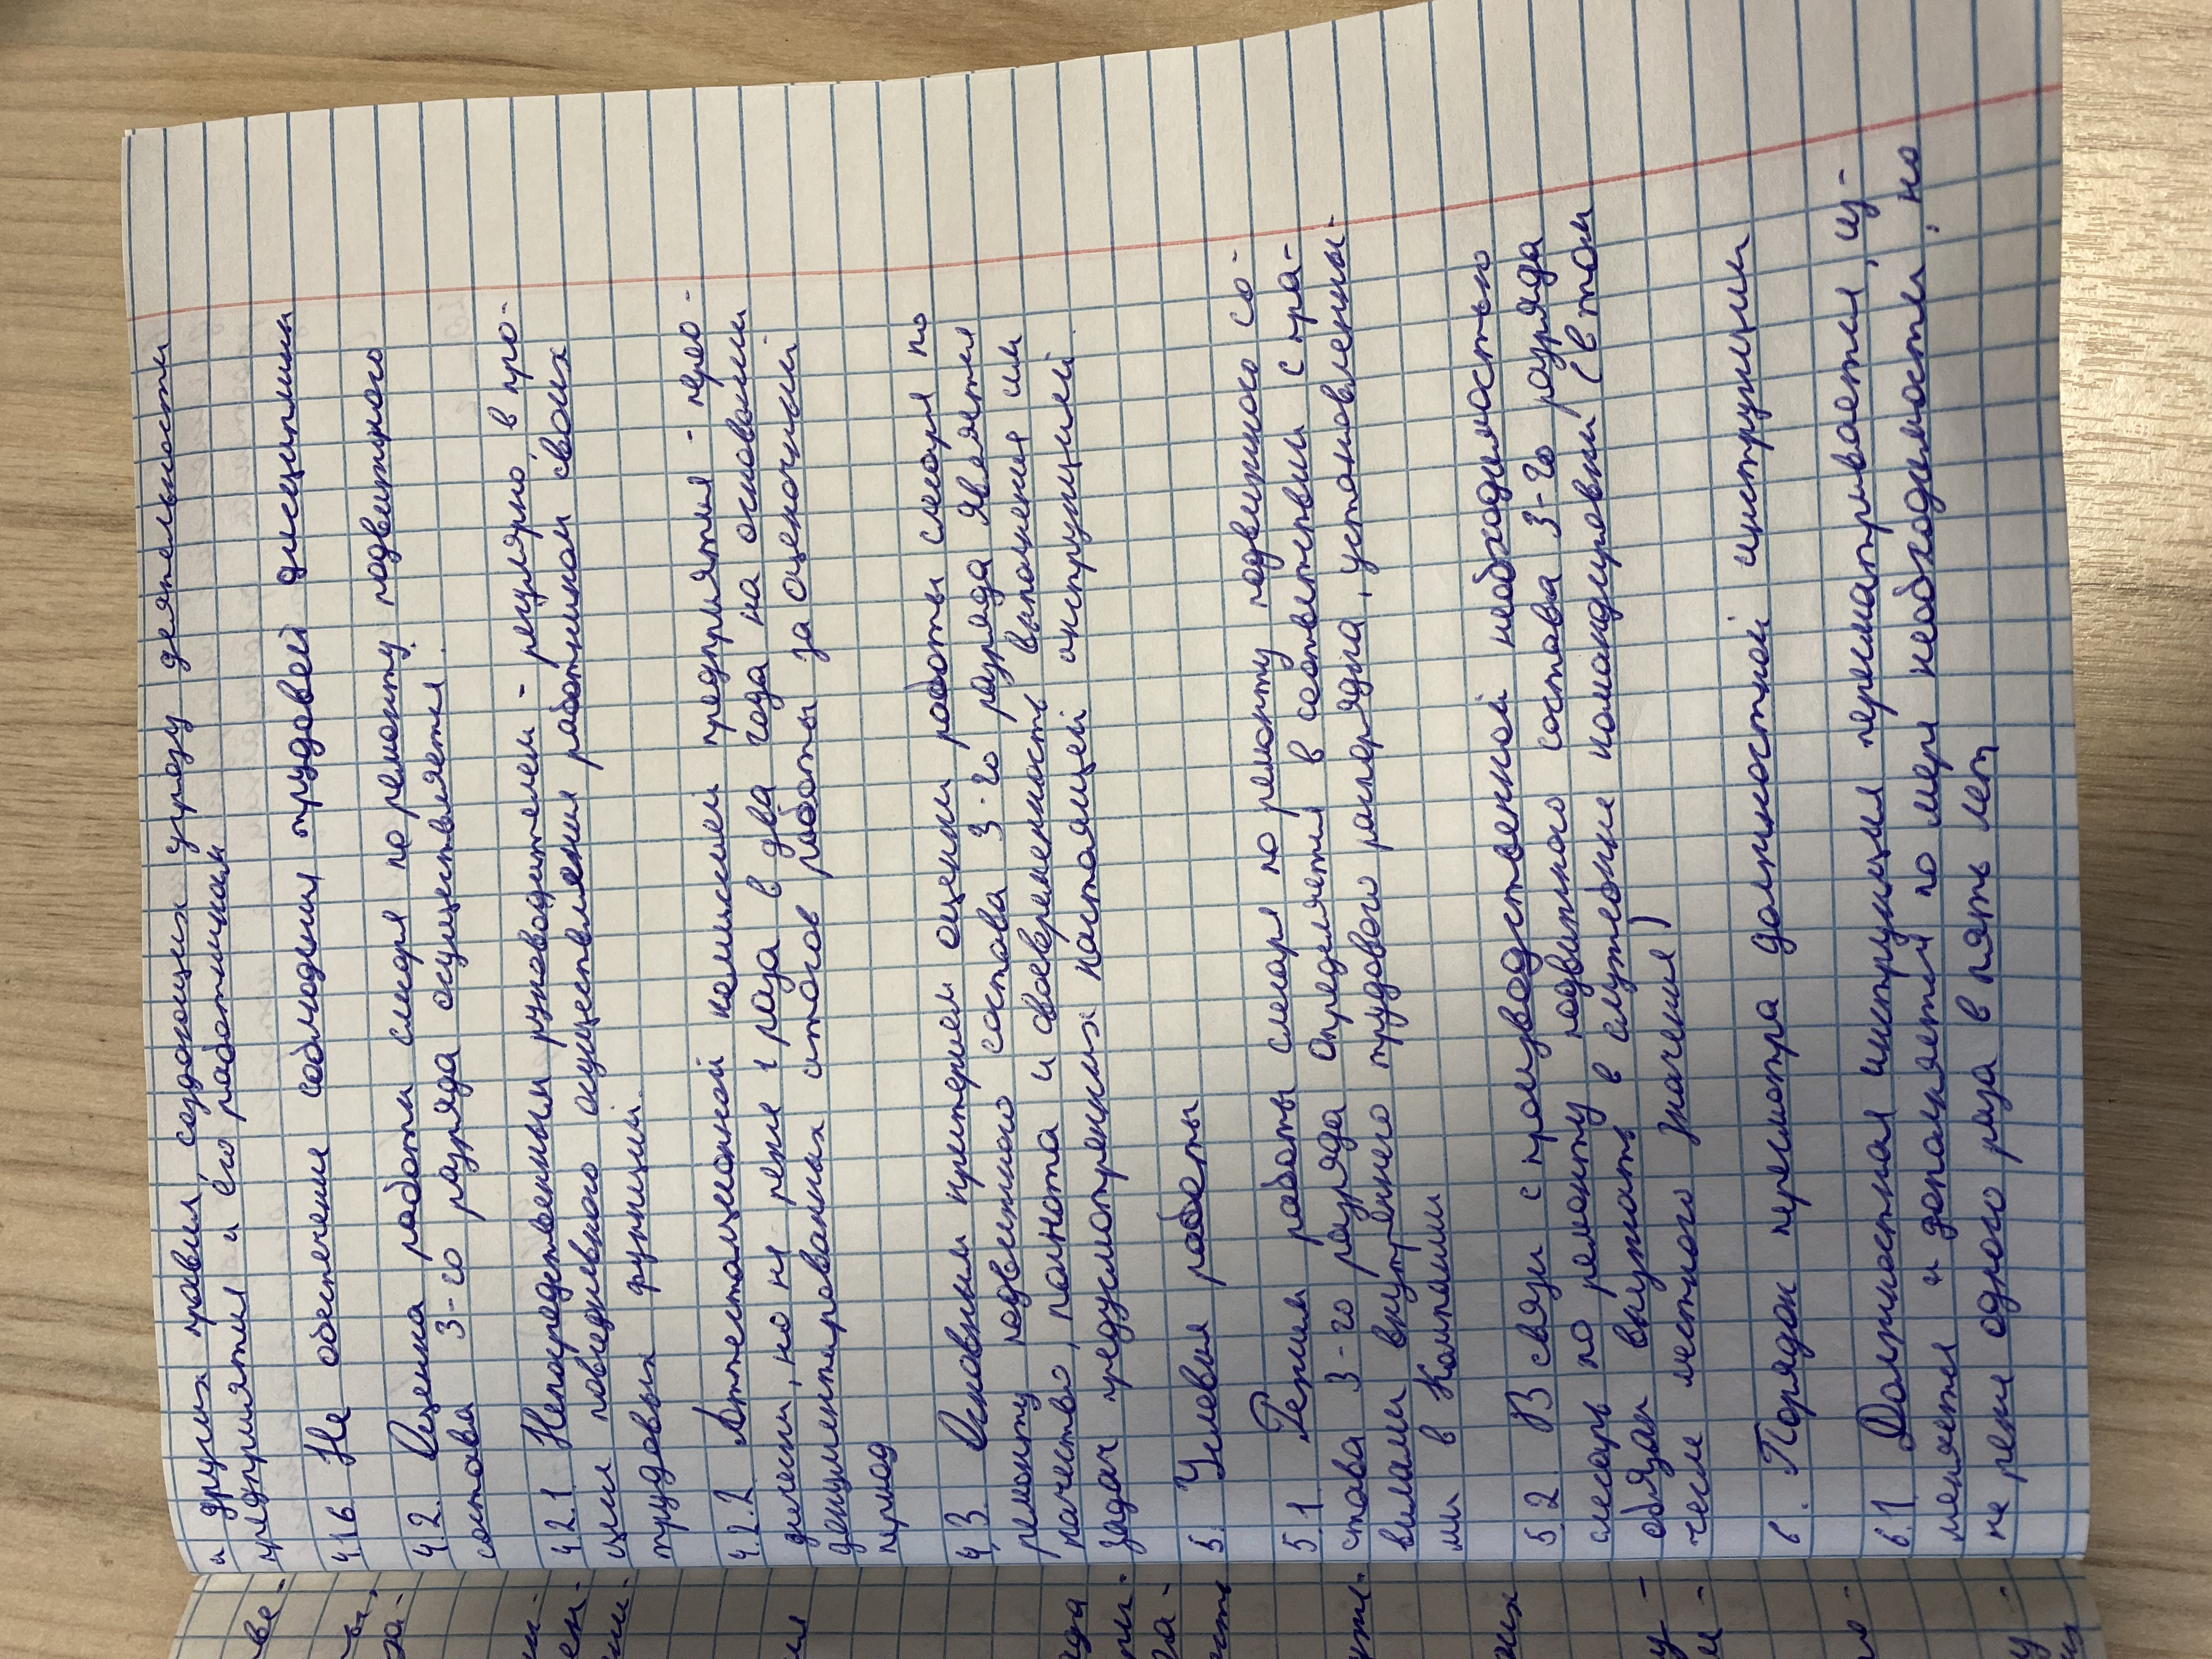 и других правил, создающих угрозу деятельности
предприятия и его работникам
4.1.6. Не обеспечение соблюдения трудовой дисциплины
4.2. Оценка работы слесаря по ремонту подвижного
состава 3-го разряда осуществляется.
4.2.1. Непосредственным руководителем - регулярно, в про-
цессе повседневного осуществления работником своих
трудовых функций.
4.2.2. Аттестационной комиссией предприятия - перио-
дически, но не реже 1 раза в два года на основании
документированных итогов работы за оценочный
период
4.3. Основным критерием оценки работы слесаря по
ремонту подвижного состава 3-го разряда является
качество, полнота и своевременность выполнения им
задач предусмотренных настоящей инструкцией.
5. Условия работы
5.1. Режим работы слесаря по ремонту подвижного со-
става 3-го разряда определяется в соответствии с пра-
вилами внутреннего трудового распорядка, установленны-
ми в Компании
5.2. В связи с производственной необходимостью
слесарь по ремонту подвижного состава 3-го разряда
обязан выезжать в служебные командировки (в том
числе местного значения)
6. Порядок пересмотра должностной инструкции
6.1. Должностная инструкция пересматривается, из-
меняется и дополняется по мере необходимости, но
не реже одного раза в пять лет